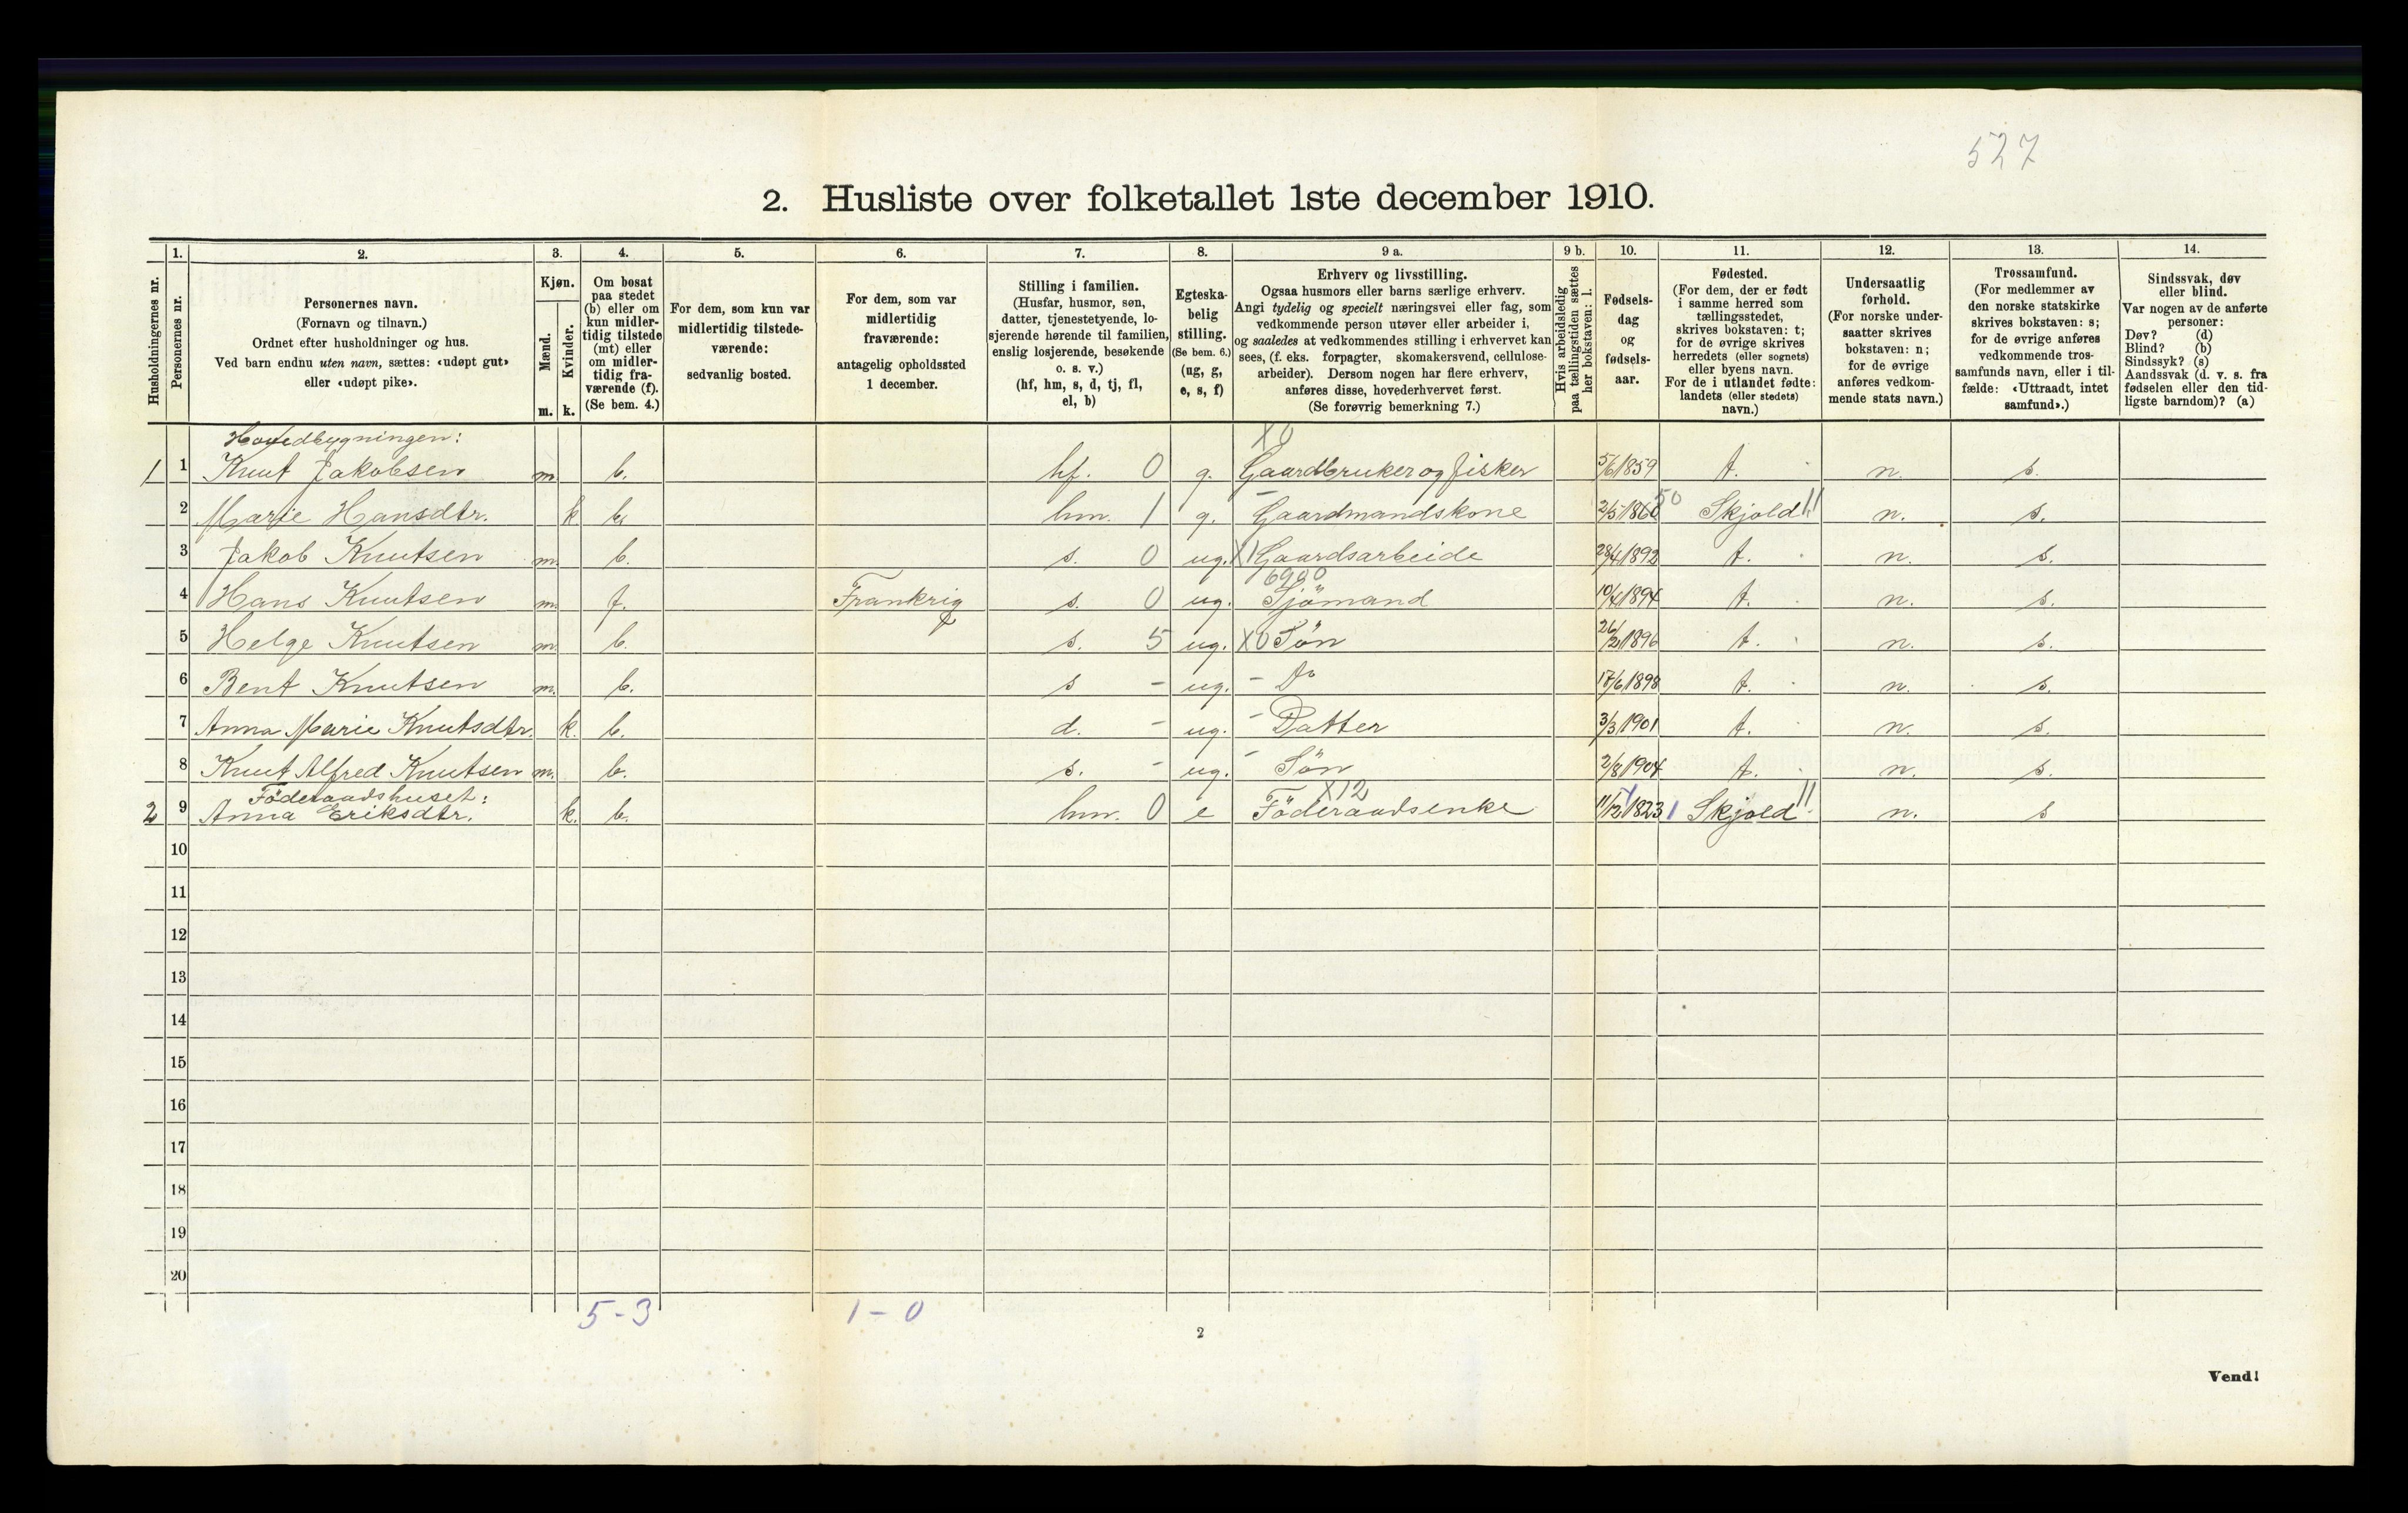 527
2. Husliste over folketallet 1ste december 1910.
Husholdningernes nr.
1.
Personernes nr.
2.
Personernes navn.
(Fornavn og tilnavn.)
Ordnet efter husholdninger og hus.
Ved barn endnu uten navn, sættes: «udøpt gut»
eller «udøpt pike».
3.
Kjøn.
Mænd.
Kvinder.
m. k.
4.
Om bosat
paa stedet
(b) eller om
kun midler-
tidig tilstede
(mt) eller
om midler-
tidig fra-
værende (f).
(Se bem. 4.)
5.
For dem, som kun var
midlertidig tilstede-
værende:
sedvanlig bosted.
6.
For dem, som var
midlertidig
fraværende:
antagelig opholdssted
1 december.
7.
Stilling i familien.
(Husfar, husmor, søn,
datter, tjenestetyende, lo-
sjerende hørende til familien,
enslig losjerende, besøkende
o. s. v.)
(hf, hm, s, d, tj, fl,
el, b)
8.
Egteska-
belig
stilling.
(Se bem. 6.)
(ug, g,
e, s, f)
9 a.
Erhverv og livsstilling.
Ogsaa husmors eller barns særlige erhverv.
Angi tydelig og specielt næringsvei eller fag, som
vedkommende person utøver eller arbeider i,
og saaledes at vedkommendes stilling i erhvervet kan
sees, (f. eks. forpagter, skomakersvend, cellulose-
arbeider). Dersom nogen har flere erhverv,
anføres disse, hovederhvervet først.
(Se forøvrig bemerkning 7.)
9 b.
Hvis arbeidsledig
paa tællingstiden sættes
her bokstaven: l.
10.
Fødsels-
dag
og
fødsels-
aar.
11.
Fødested.
(For dem, der er født
i samme herred som
tællingsstedet,
skrives bokstaven: t;
for de øvrige skrives
herredets (eller sognets)
eller byens navn.
For de i utlandet fødte:
landets (eller stedets)
navn.)
12.
Undersaatlig
forhold.
(For norske under-
saatter skrives
bokstaven: n;
for de øvrige
anføres vedkom-
mende stats navn.)
13.
Trossamfund.
(For medlemmer av
den norske statskirke
skrives bokstaven: s;
for de øvrige anføres
vedkommende tros-
samfunds navn, eller i til-
fælde: «Uttraadt, intet
samfund».)
14.
Sindssvak, døv
eller blind.
Var nogen av de anførte
personer:
Døv? (d)
Blind? (b)
Sindssyk? (s)
Aandssvak (d. v. s. fra
fødselen eller den tid-
ligste barndom)? (a)
Hovedbygningen: X0
1 1 Knut Jakobsen m. b. hf. 0 g. Gaardbruker og fisker 5/6 1859 t. n. s.
2 Marie Hansdtr. k b. hm. 1 g. - Gaardmandskone 2/5 1860 50 Skjold 11 n. s.
3 Jakob Knutsen m. b. s. 0 ug. X1 Gaardsarbeide 28/4 1892 t. n. s.
6900
4 Hans Knutsen m. f. Frankrig s. 0 ug. Sjömand 10/4 1894 t. n. s.
5 Helge Knutsen m. b. s. 5 ug. X0 Sön 26/2 1896 t. n. s.
6 Bent Knutsen m. b. s - ug. - Do 17/6 1898 t. n. s.
7 Anna Marie Knutsdtr. k. b. d. - ug. - Datter 3/3 1901 t. n. s.
8 Knut Alfred Knutsen m. b. s. - ug. - Sön 2/8 1904 t. n. s.
Föderaadshuset: X12
2 9 Anna Eriksdtr. k. b. hm. 0 e Föderaadsenke 11/12 1823 1 Skjold 11 n. s
10
11
12
13
14
15
16
17
18
19
20
5-3 1-0
2
Vend!